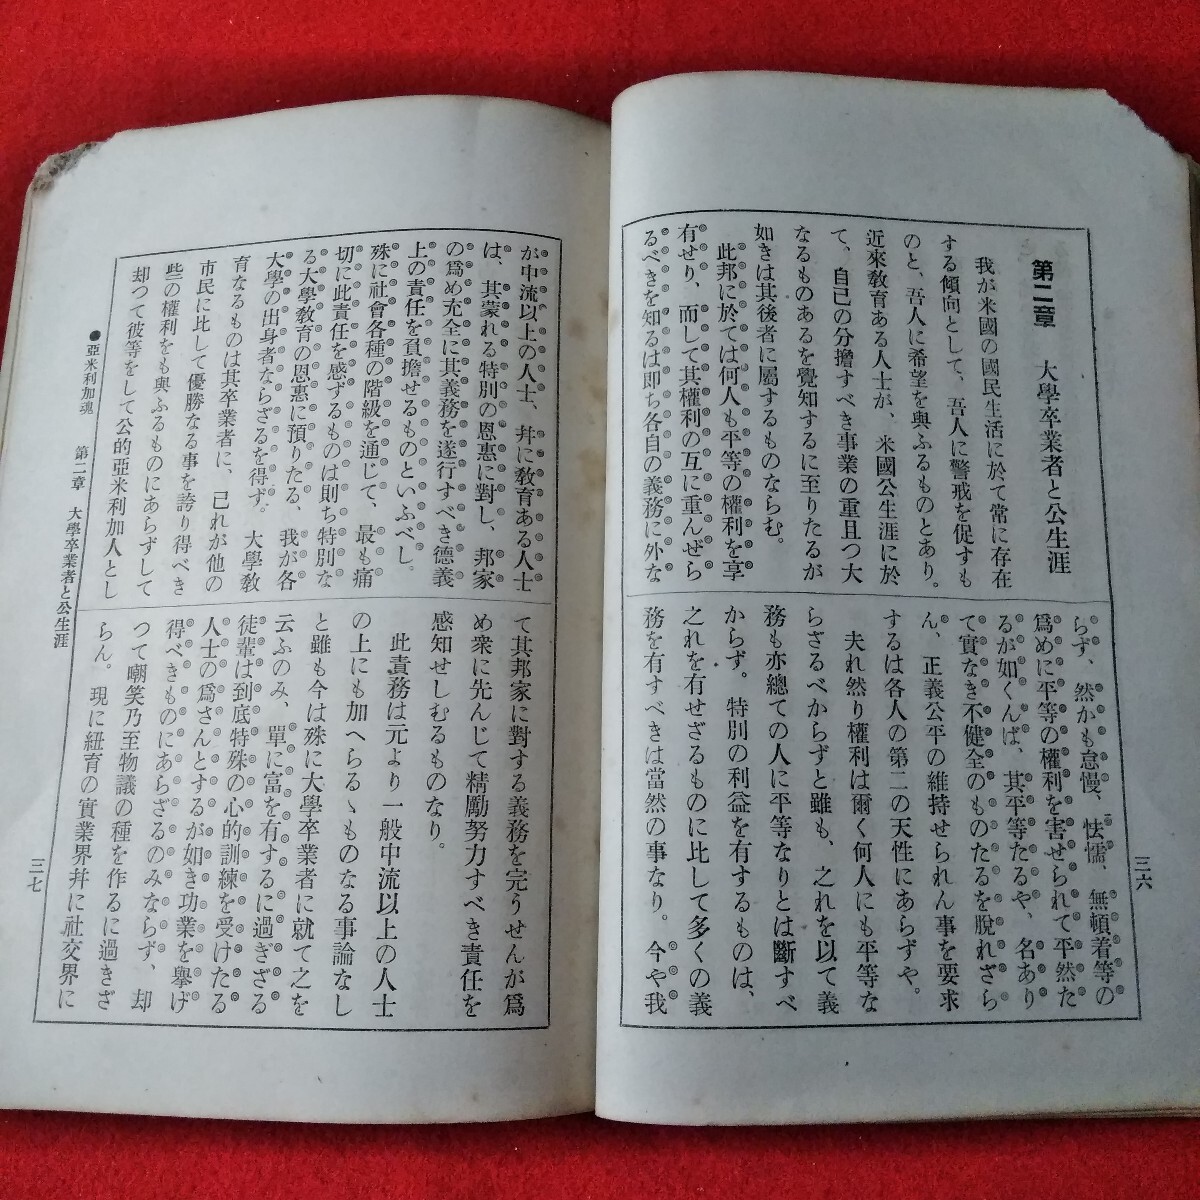 第二章　大學卒業者と公生涯
我が米國の國民生活に於て常に存在
する傾向として、吾人に警戒を促すも
のと、吾人に希望を與ふるものとあり。
近來教育ある人士が、米國公生涯に於
て、自己の分擔すべき事業の重且つ大
なるものあるを覺知するに至りたるが
如きは其後者に屬するものならむ。
此邦に於ては何人も平等の權利を享
有せり、而して其權利の互に重んぜら
るべきを知るは即ち各自の義務に外な
らず、然かも怠慢、怯懦、無頓着等の
爲めに平等の權利を害せられて平然た
るが如くんば、其平等たるや、名あり
て實なき不健全のものたるを脫れざら
ん、正義公平の維持せられん事を要求
するは各人の第二の天性にあらずや。
夫れ然り權利は爾く何人にも平等な
らざるべからずと雖も、之れを以て義
務も亦總ての人に平等なりとは斷すべ
からず。特別の利益を有するものは、
之れを有せざるものに比して多くの義
務を有すべきは當然の事なり。今や我
三六
が中流以上の人士、幷に教育ある人士
は、其蒙れる特別の恩惠に對し、邦家
の爲め充全に其義務を遂行すべき德義
上の責任を負擔せるものといふべし。
殊に社會各種の階級を通じて、最も痛
切に此責任を感ずるものは則ち特別な
る大學教育の恩惠に預りたる、我が各
大學の出身者ならざるを得ず。大學教
育なるものは其卒業者に、己れが他の
市民に比して優勝なる事を誇り得べき
些の權利をも與ふるものにあらずして
却つて彼等をして公的亞米利加人とし
て其邦家に對する義務を完うせんが爲
め衆に先んじて精勵努力すべき責任を
感知せしむるものなり。
此責務は元より一般中流以上の人士
の上にも加へらるゝものなる事論なし
と雖も今は殊に大學卒業者に就て之を
云ふのみ、單に富を有するに過ぎざる
徒輩は到底特殊の心的訓練を受けたる
人士の爲さんとするが如き功業を擧げ
得べきものにあらざるのみならず、却
つて嘲笑乃至物議の種を作るに過ぎざ
らん。現に紐育の實業界幷に社交界に
●亞米利加魂　第二章　大學卒業者と公生涯
三七